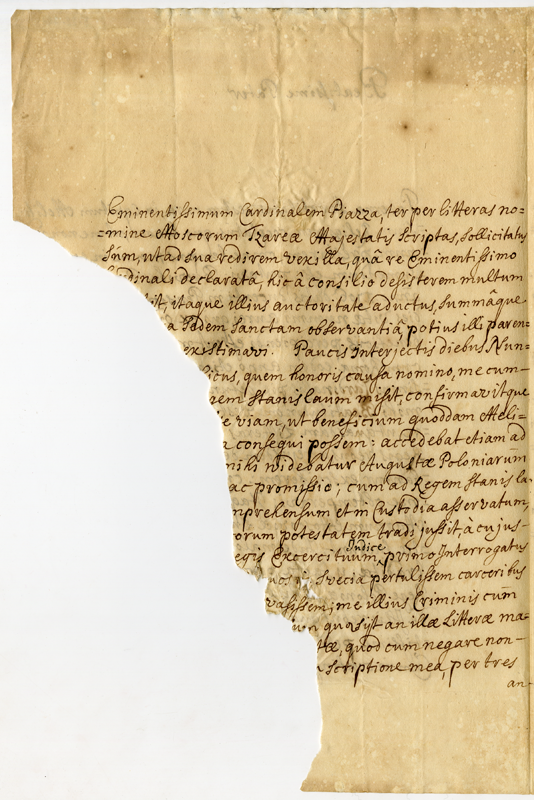 Eminentissimum Cardinalem Piazza, ter per litteras no=
=mine Moscorum Tzareæ Majestatis scriptas, sollicitatus
sum, ut ad sua redirem vexilla, quâ re Eminentissimo
Cardinali declaratâ, hic â consilio desisterem multum
itaque illius auctoritate aductus, summâque
a Sedem Sanctam observantiâ, potius illi paren=
existimavi. Paucis interjectis diebus Nun=
icus, quem honoris causa nomino, me cum=
rem Stanislaum misit, confirmavitque
e viam, ut beneficium quoddam Meli=
a consequi possem: accedebat etiam ad
mihi videbatur Augustæ Poloniarum
ac promissio; cum ad Regem Stanisla=
mprehensum et in Custodia asservatum,
orum potestatem tradi jussit, à cujus=
egis Excercituum Iudice, primo Interrogatus
Svecia pertulissem carceribus
vasissem; me illius Criminis cum
quæsijt an illæ Litteræ ma=
tæ, quod cum negare non=
scriptione mea, per tres
an=